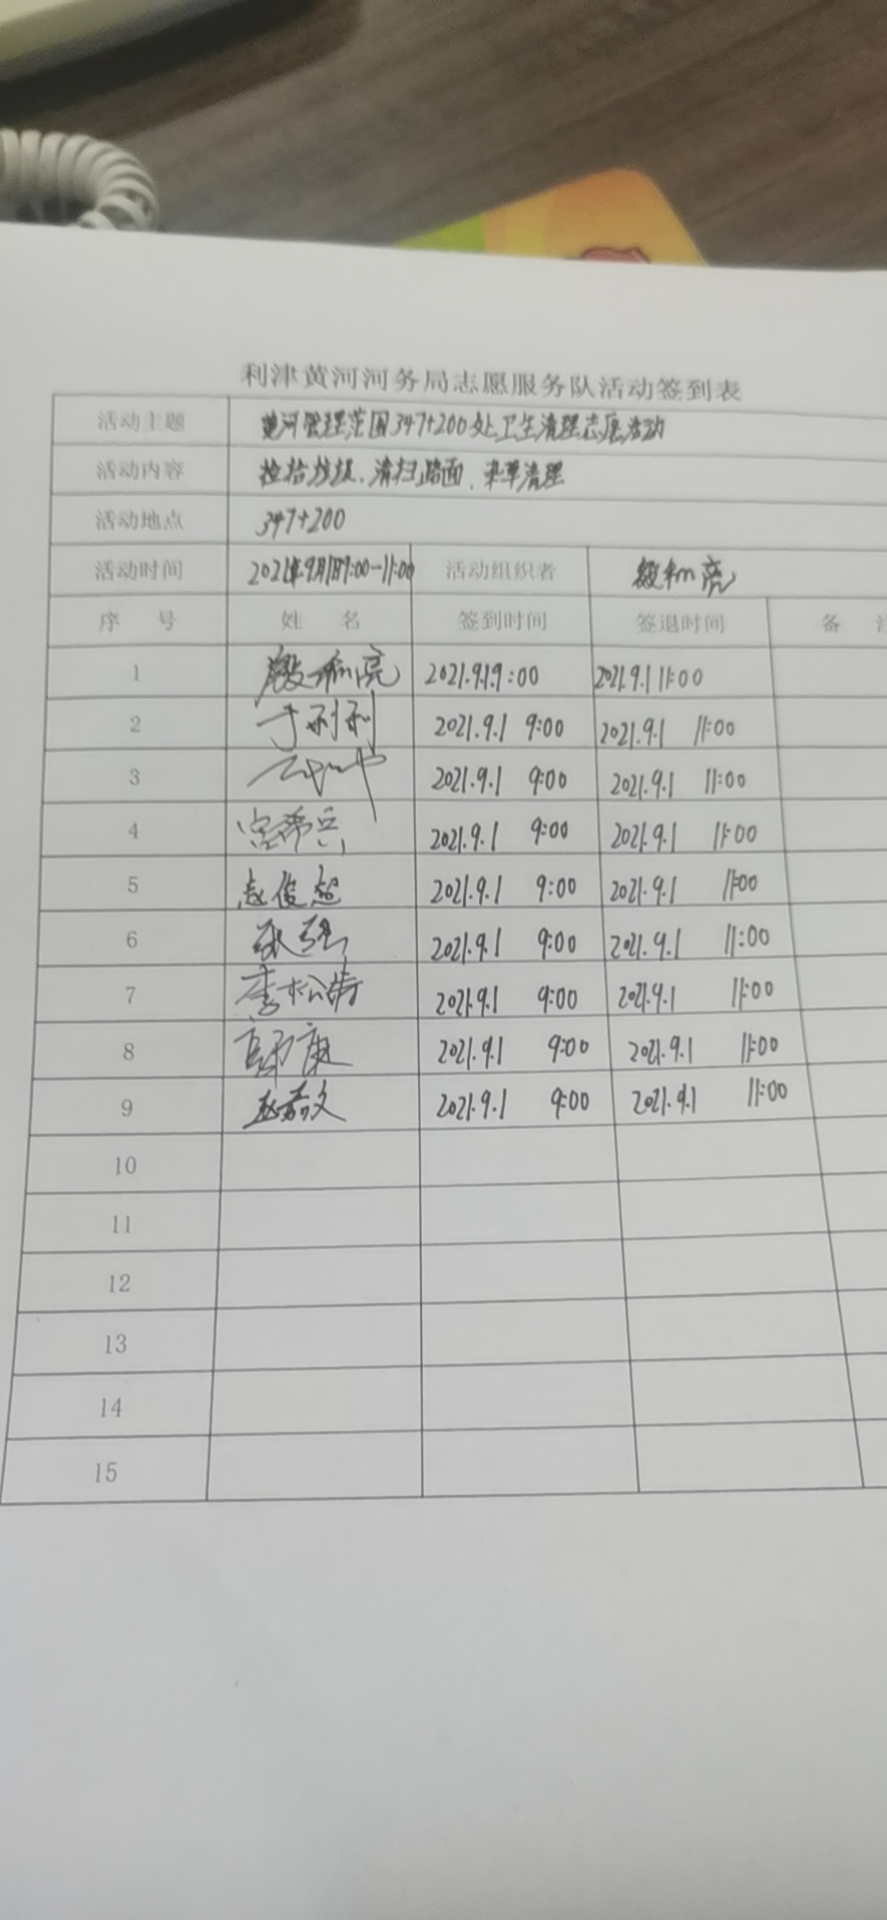 利津黄河河务局志愿服务队活动签到表
活动主题 黄河管理范围347+200处卫生清理志愿活动
活动内容 捡拾垃圾、清扫路面、杂草清理
活动地点 347+200
活动时间 2021年9月1日9:00-11:00 活动组织者 和亮
序 号 姓 名 签到时间 签退时间 备
1 和亮 2021.9.1 9:00 2021.9.1 11:00
2 于利利 2021.9.1 9:00 2021.9.1 11:00
3 2021.9.1 9:00 2021.9.1 11:00
4 宫希兵 2021.9.1 9:00 2021.9.1 11:00
5 赵俊超 2021.9.1 9:00 2021.9.1 11:00
6 张强 2021.9.1 9:00 2021.9.1 11:00
7 李松涛 2021.9.1 9:00 2021.9.1 11:00
8 康 2021.9.1 9:00 2021.9.1 11:00
9 文 2021.9.1 9:00 2021.9.1 11:00
10
11
12
13
14
15